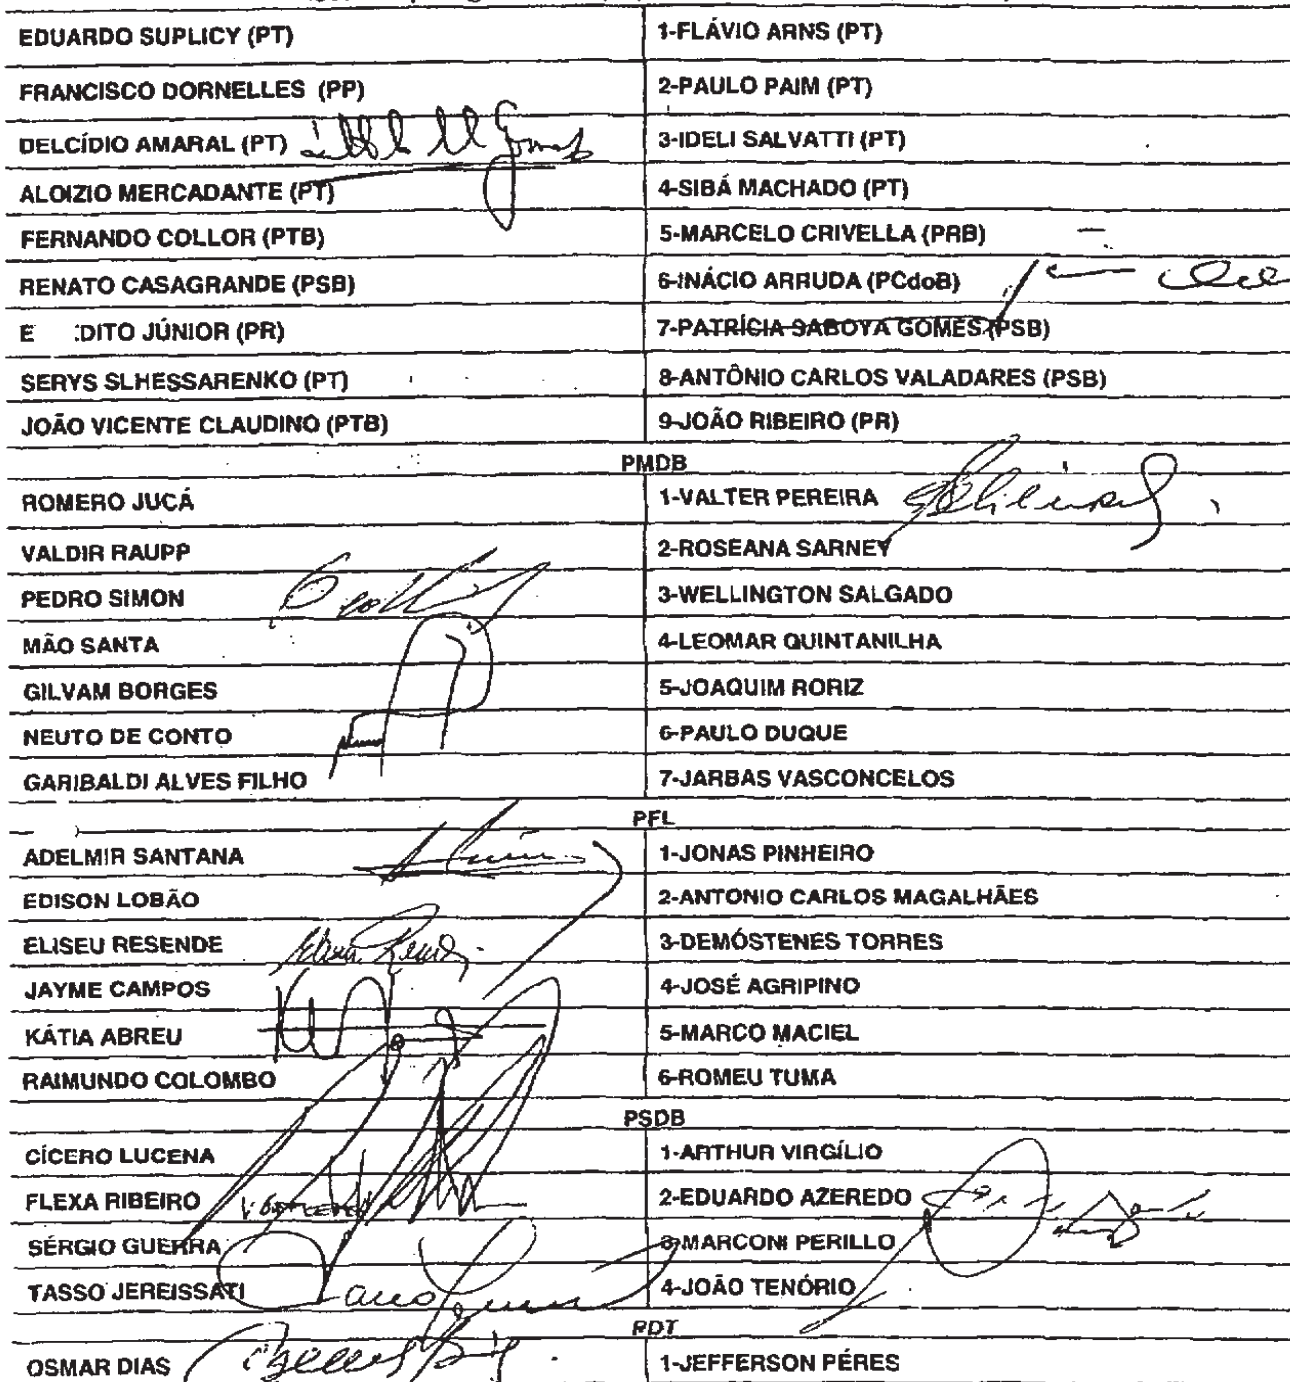 EDUARDO SUPLICY (PT) 1-FLÁVIO ARNS (PT)
FRANCISCO DORNELLES (PP) 2-PAULO PAIM (PT)
DELCÍDIO AMARAL (PT) 3-IDELI SALVATTI (PT)
ALOIZIO MERCADANTE (PT) 4-SIBÁ MACHADO (PT)
FERNANDO COLLOR (PTB) 5-MARCELO CRIVELLA (PRB)
RENATO CASAGRANDE (PSB) 6-INÁCIO ARRUDA (PCdoB)
E DITO JÚNIOR (PR) 7-PATRÍCIA SABOYA GOMES (PSB)
SERYS SLHESSARENKO (PT) 8-ANTÔNIO CARLOS VALADARES (PSB)
JOÃO VICENTE CLAUDINO (PTB) 9-JOÃO RIBEIRO (PR)
PMDB
ROMERO JUCÁ 1-VALTER PEREIRA
VALDIR RAUPP 2-ROSEANA SARNEY
PEDRO SIMON 3-WELLINGTON SALGADO
MÃO SANTA 4-LEOMAR QUINTANILHA
GILVAM BORGES 5-JOAQUIM RORIZ
NEUTO DE CONTO 6-PAULO DUQUE
GARIBALDI ALVES FILHO 7-JARBAS VASCONCELOS
PFL
ADELMIR SANTANA 1-JONAS PINHEIRO
EDISON LOBÃO 2-ANTONIO CARLOS MAGALHÃES
ELISEU RESENDE 3-DEMÓSTENES TORRES
JAYME CAMPOS 4-JOSÉ AGRIPINO
KÁTIA ABREU 5-MARCO MACIEL
RAIMUNDO COLOMBO 6-ROMEU TUMA
PSDB
CÍCERO LUCENA 1-ARTHUR VIRGÍLIO
FLEXA RIBEIRO 2-EDUARDO AZEREDO
SÉRGIO GUERRA 3-MARCONI PERILLO
TASSO JEREISSATI 4-JOÃO TENÓRIO
PDT
OSMAR DIAS 1-JEFFERSON PÉRES